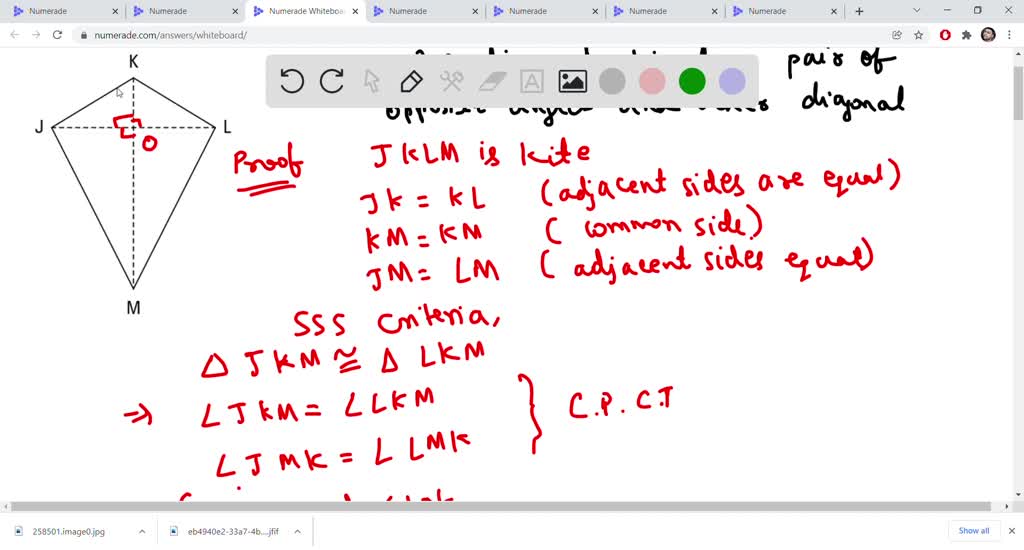 Numerade
Numerade
Numerade Whiteboa
Numerade
Numerade
Numerade
Numerade
numerade.com/answers/whiteboard/
K
J
L
O
M
pair of
diagonal
Proof
JKLM is kite
JK = KL (adjacent sides are equal)
KM = KM (common side)
JM = LM (adjacent sides equal)
SSS criteria,
Δ JKM ≅ Δ LKM
⇒ ∠JKM = ∠LKM
∠JMK = ∠LMK
C.P.C.T
258501.image0.jpg
eb4940e2-33a7-4b....jfif
Show all